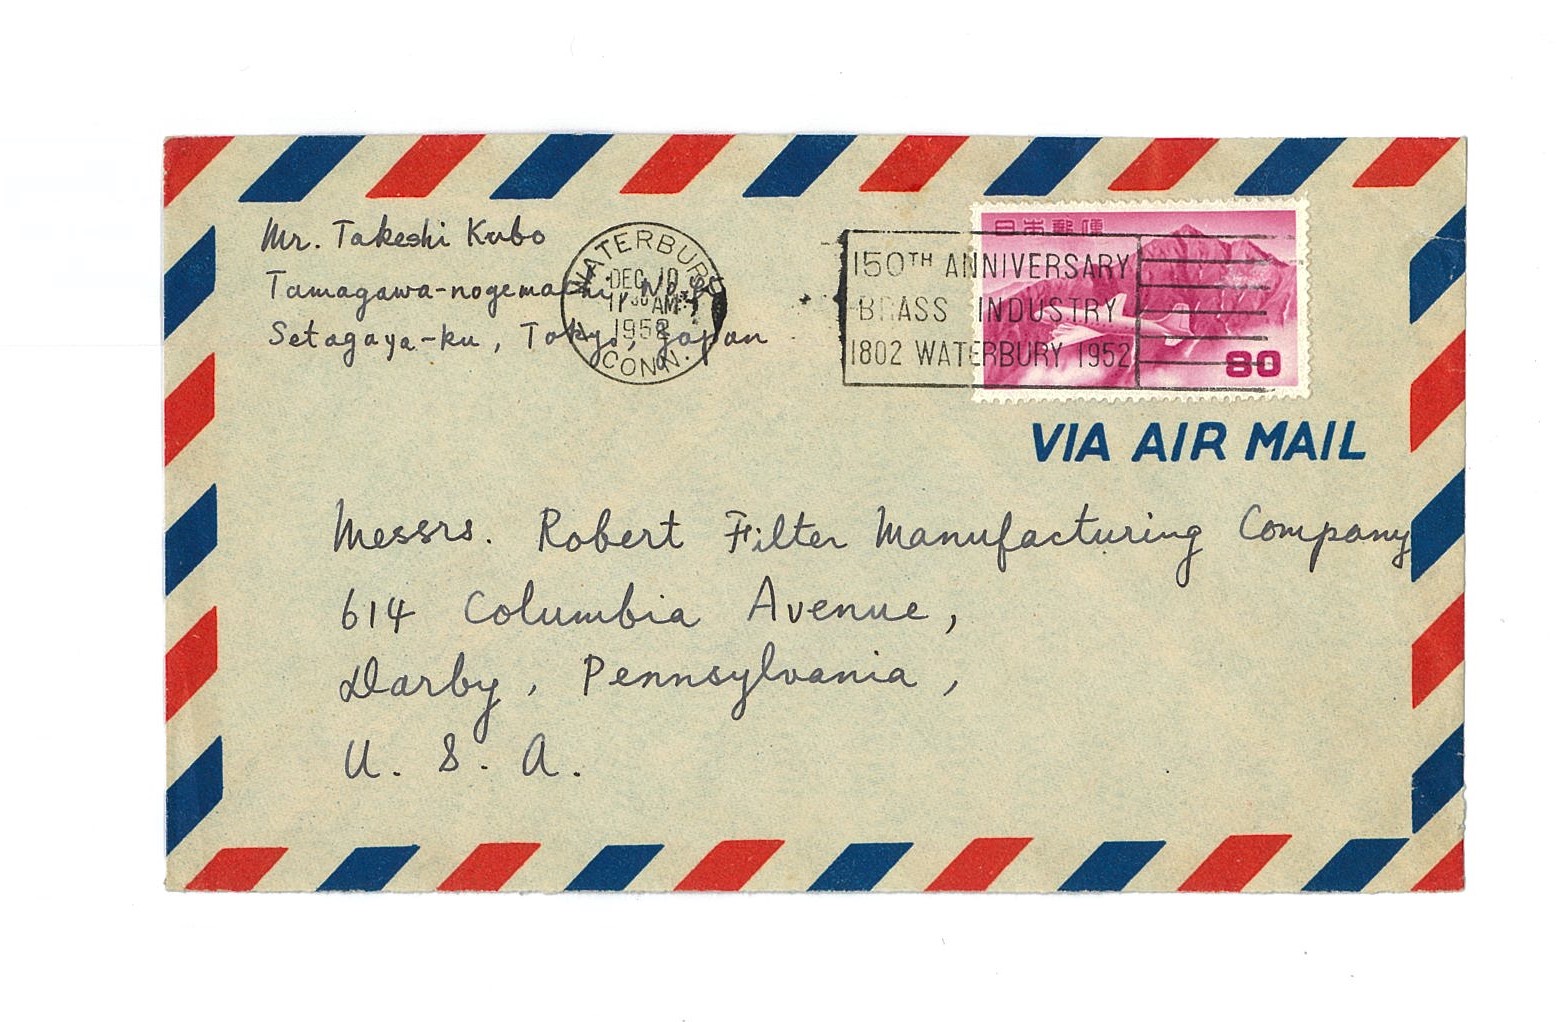 Mr. Takeshi Kubo
Tamagawa-nogemachi
Setagaya-ku, Tokyo, Japan
WATERBURY
DEC 10
11 30 AM
1952
CONN.
日本郵便
150TH ANNIVERSARY
BRASS INDUSTRY
1802 WATERBURY 1952
80
VIA AIR MAIL
Messrs. Robert Filter Manufacturing Company
614 Columbia Avenue,
Darby, Pennsylvania,
U. S. A.